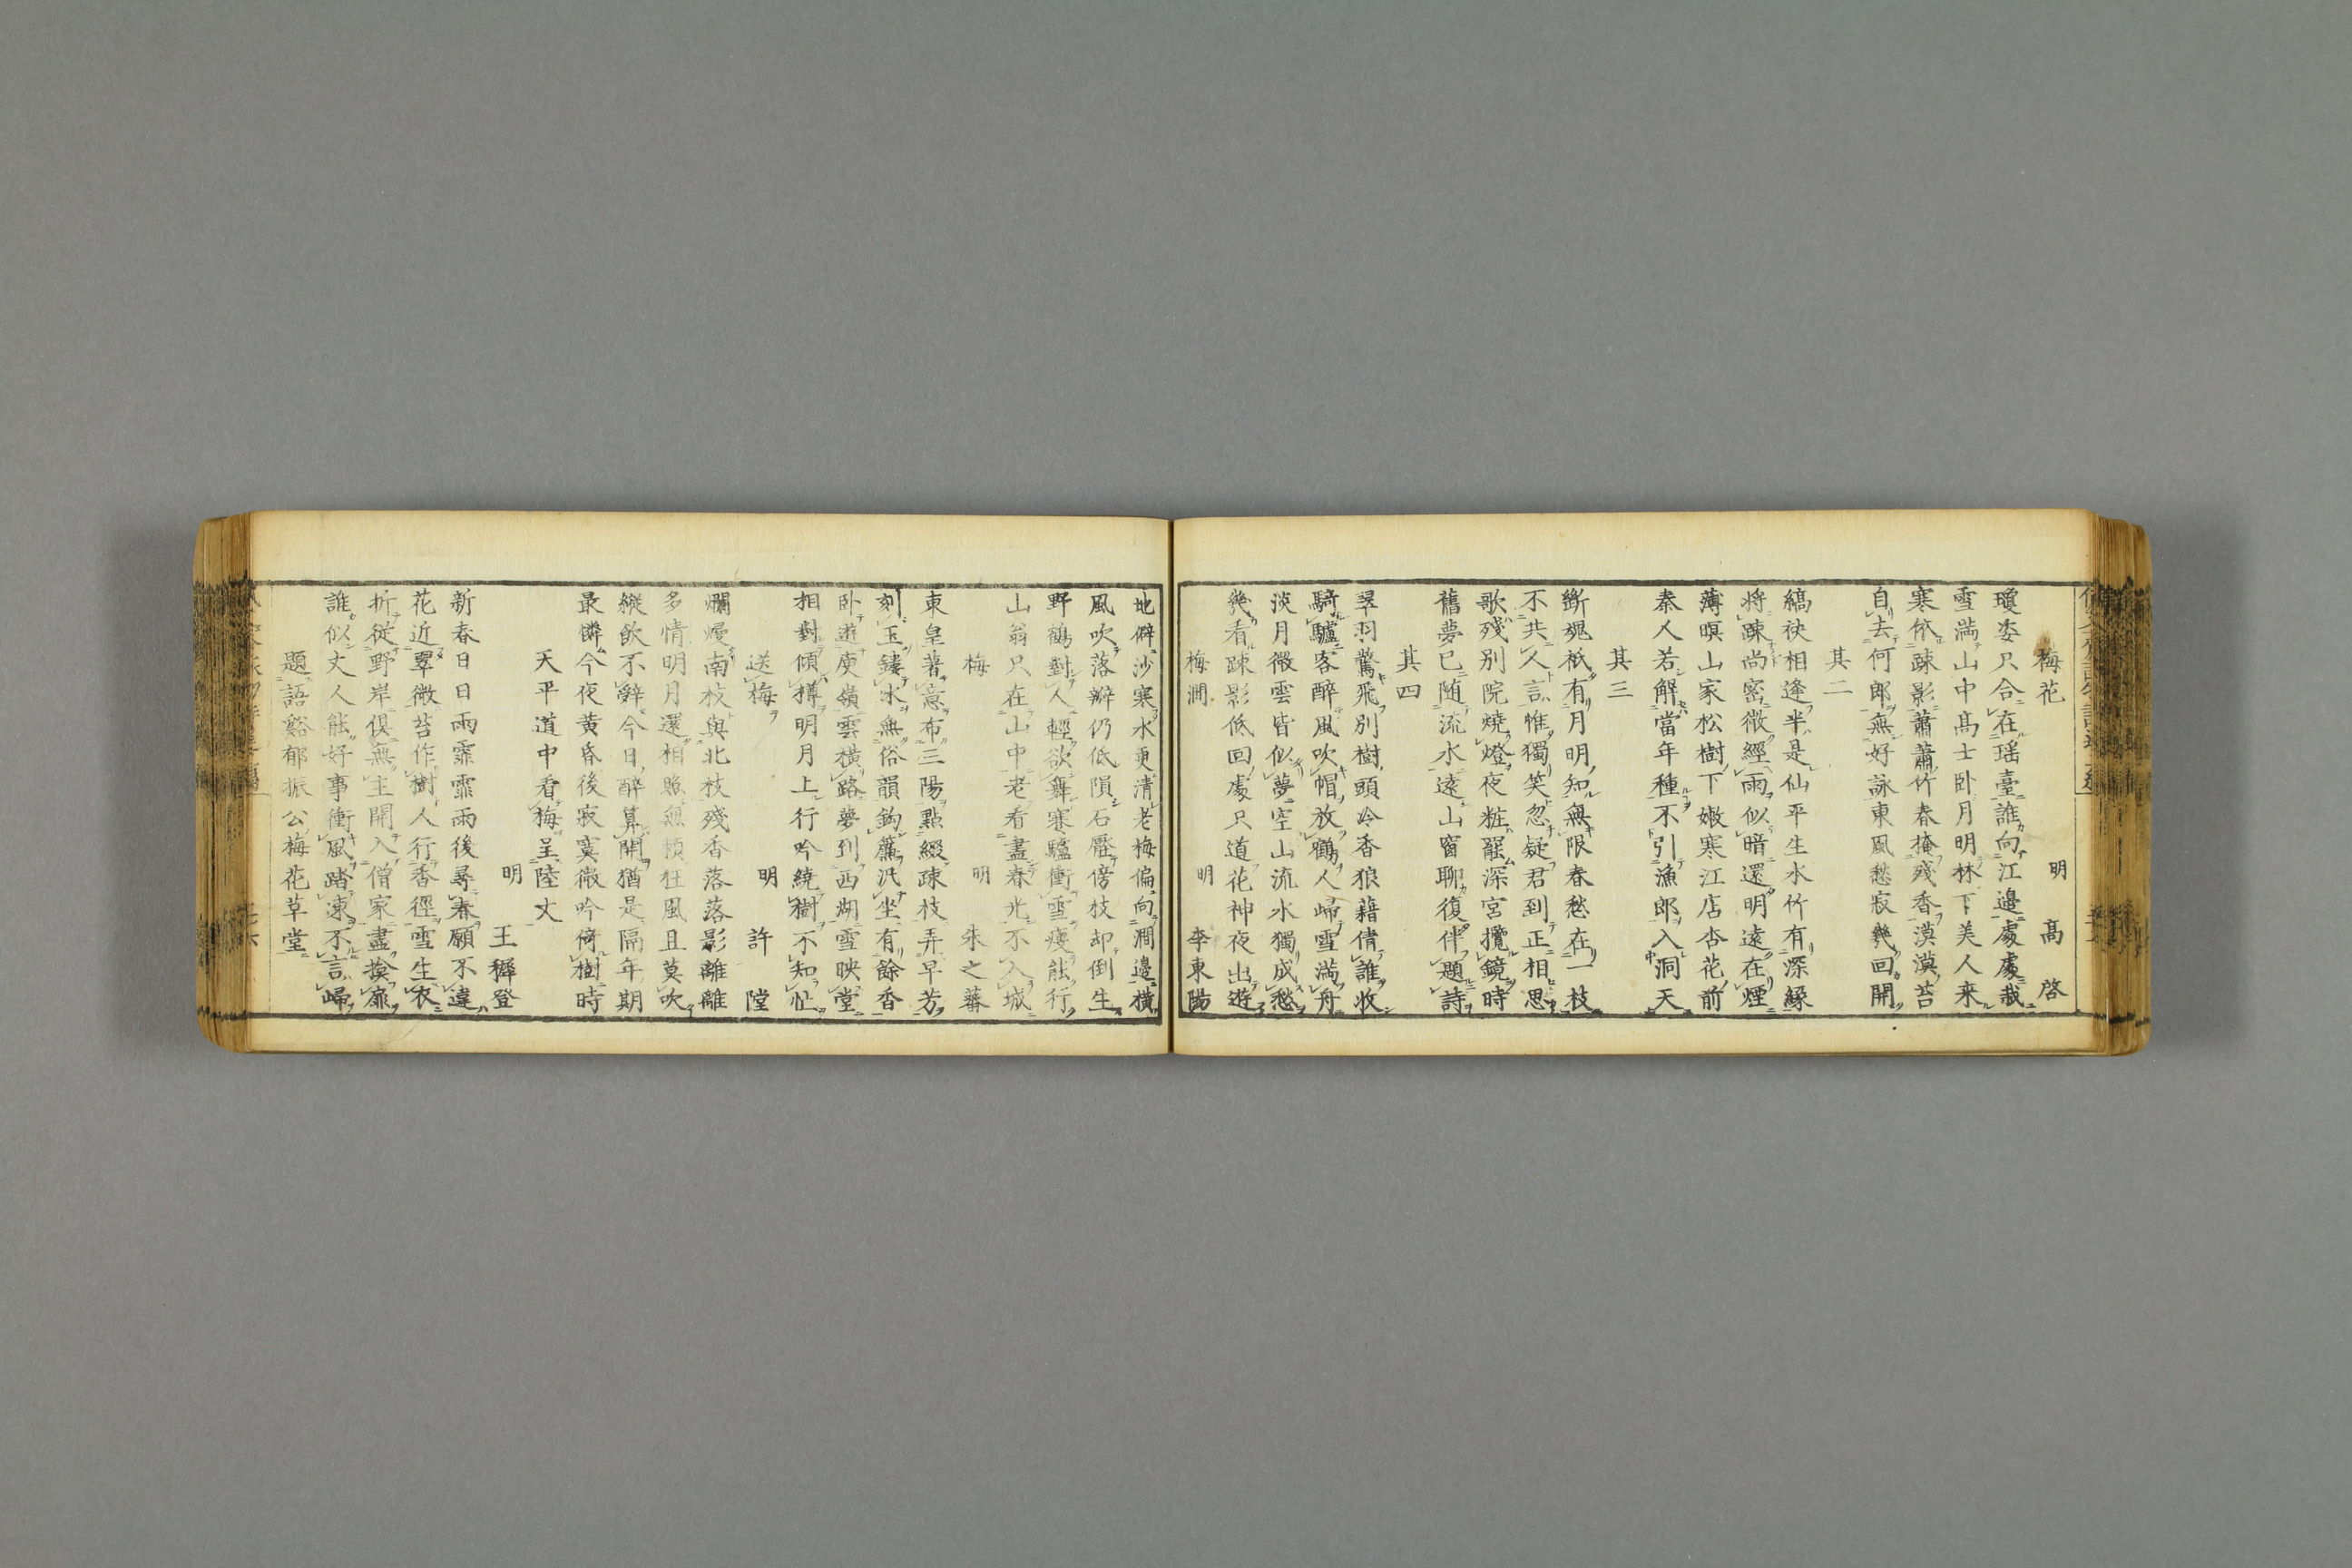 梅花 明 高啓
瓊姿只合在瑶臺誰向江邊處處栽
雪滿山中高士卧月明林下美人来
寒依疎影蕭蕭竹春掩殘香漠漠苔
自去何郎無好詠東風愁寂幾回開
其二
縞袂相逢半是仙平生水竹有深緣
将疎尚密微經雨似暗還明遠在煙
薄暝山家松樹下嫩寒江店杏花前
秦人若解當年種不引漁郎入洞天
其三
斷魂衹有月明知無限春愁在一枝
不共人言惟獨笑忽疑君到正相思
歌殘別院燒燈夜粧罷深宮攬鏡時
舊夢已随流水遠山窗聊復伴題詩
其四
翠羽驚飛別樹頭冷香狼藉倩誰收
騎驢客醉風吹帽放鶴人歸雪滿舟
淡月微雲皆似夢空山流水獨成愁
幾看疎影低回處只道花神夜出遊
梅澗 明 李東陽
地僻沙寒水更清老梅偏向澗邊橫
風吹落瓣仍低隕石壓傍枝却倒生
野鶴對人輕欲舞寒驢衝雪瘦能行
山翁只在山中老看盡春光不入城
梅 明 朱之蕃
東皇著意布三陽點綴疎枝弄早芳
刻玉鏤冰無俗韻鈎簾汎坐有餘香
卧遊庾嶺雲橫路夢到西湖雪映堂
相對傾樽明月上行吟繞樹不知忙
送梅 明 許陞
爛熳南枝與北枝殘香落落影離離
多情明月還相照無頼狂風且莫吹
縱飲不辭今日醉算開猶是隔年期
最憐今夜黄昏後寂寞微吟倚樹時
天平道中看梅呈陸丈
明 王穉登
新春日日雨霏霏雨後尋春願不違
花近翠微苔作樹人行香徑雪生衣
折從野岸俱無主開入僧家盡掩扉
誰似丈人能好事衝風踏凍不言歸
題語谿郁振公梅花草堂